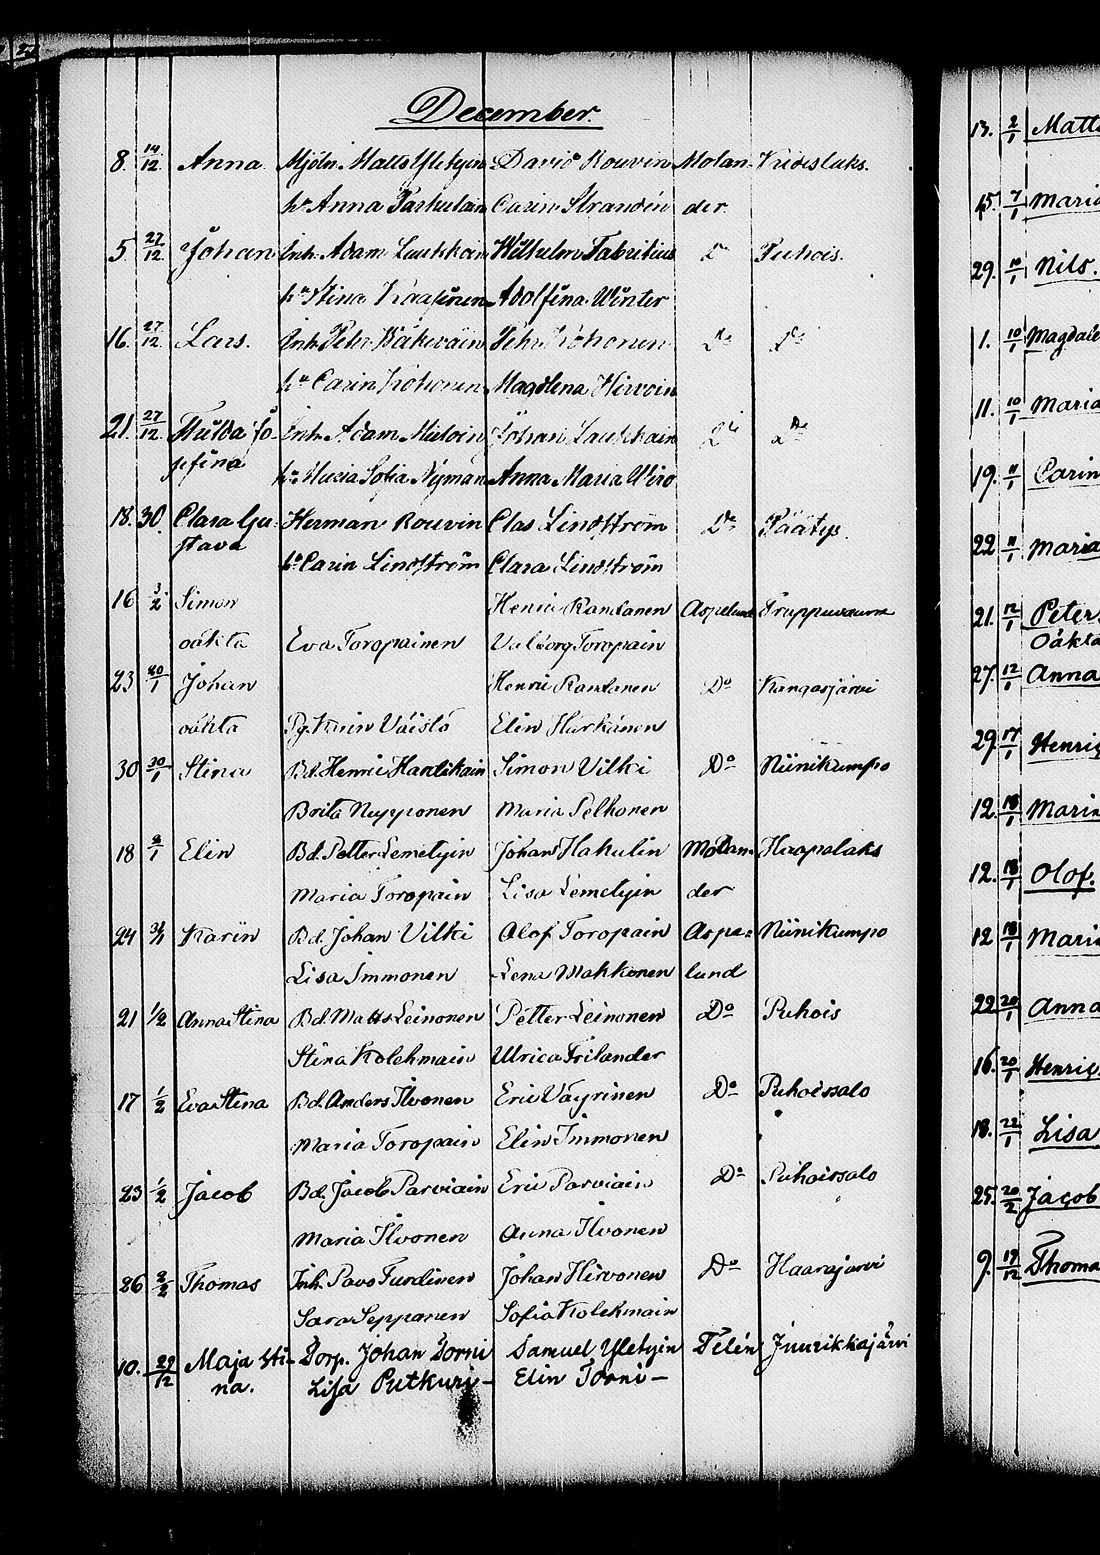 December.
8. 14/12 Anna Mjöln. Matts Yletyin David Rouvin Molan- Kideslaks.
hu Anna Parkulain Carin Strandén der.
5 27/12. Johan Inh. Adam Laukkain Wilhelm Fabritius Do Puhois.
hu Stina Kaapinen Adolfina Winter
16. 27/12 Lars. Inh. Pehr Wäkeväin Pehr Kohonen Do Do
hu Carin Kohonen Magdlena Hirvoin
21. 27/12. Hulda Jo- Inh. Adam Mieloin Johan Laukkain Do Do
sefina hu Maria Sofia Nyman Anna Maria Wiro
18. 30. Clara Gu- Herman Rouvin Clas Lindström Do Päätys.
stava hu Carin Lindström Clara Lindström
16 3/2 Simon Henric Randanen Aspelund
oäkta Eva Toropainen Valborg Toropain
23 30/1 Johan Henric Randanen Do Kangasjärvi
oäkta Pg. Karin Väistö Elin Härkänen
30 30/1 Stina Bd. Henric Hardikain Simon Vilki Do Niinikumpo
Brita Nupponen Maria Pelkonen
18 8/1 Elin Bd. Petter Lemetyin Johan Hakulin Molan- Haapalaks
Maria Toropain Lisa Lemetyin der
24 31/1 Karin Bd. Johan Vilki Olof Toropain Aspe- Niinikumpo
Lisa Immonen Lena Mahkonen lund
21 1/2 Anna Stina Bd. Matts Leinonen Petter Leinonen Do Puhois
Stina Kolehmain Ulrica Frilander
17 1/2 Eva Stina Bd. Anders Ilvonen Eric Väyrinen Do Puhoissalo
Maria Toropain Elin Immonen
23 1/2 Jacob Bd. Jacob Parviain Eric Parviain Do Puhoissalo
Maria Ilvonen Anna Ilvonen
26 2/2 Thomas Inh. Pavo Turdinen Johan Hirvonen Do Haarajärvi
Sara Sepparen Sofia Kolehmain
10. 29/12 Maja Sti- Torp. Johan Torni Samuel Yletyin Telén Juurikkajärvi
na. Lisa Putkuri- Elin Torni-
13. 2/1 Matts
15. 7/1 Maria
29. 10/1 Nils.
1. 10/1 Magdale
11. 10/1 Maria
19. 11/1 Carin
22 11/1 Maria
21. 12/1 Peter
Oäkta
27. 12/1 Anna
29. 17/1 Henric
12. 18/1 Maria
12. 18/1 Olof.
12 18/1 Maria
22. 20/1 Anna
16. 20/1 Henric
18. 22/1 Lisa
25. 20/2 Jacob
9. 19/12 Thoma